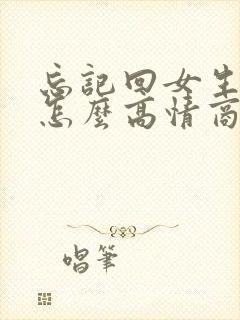 忘記回女生
怎麼高情商
唱筆